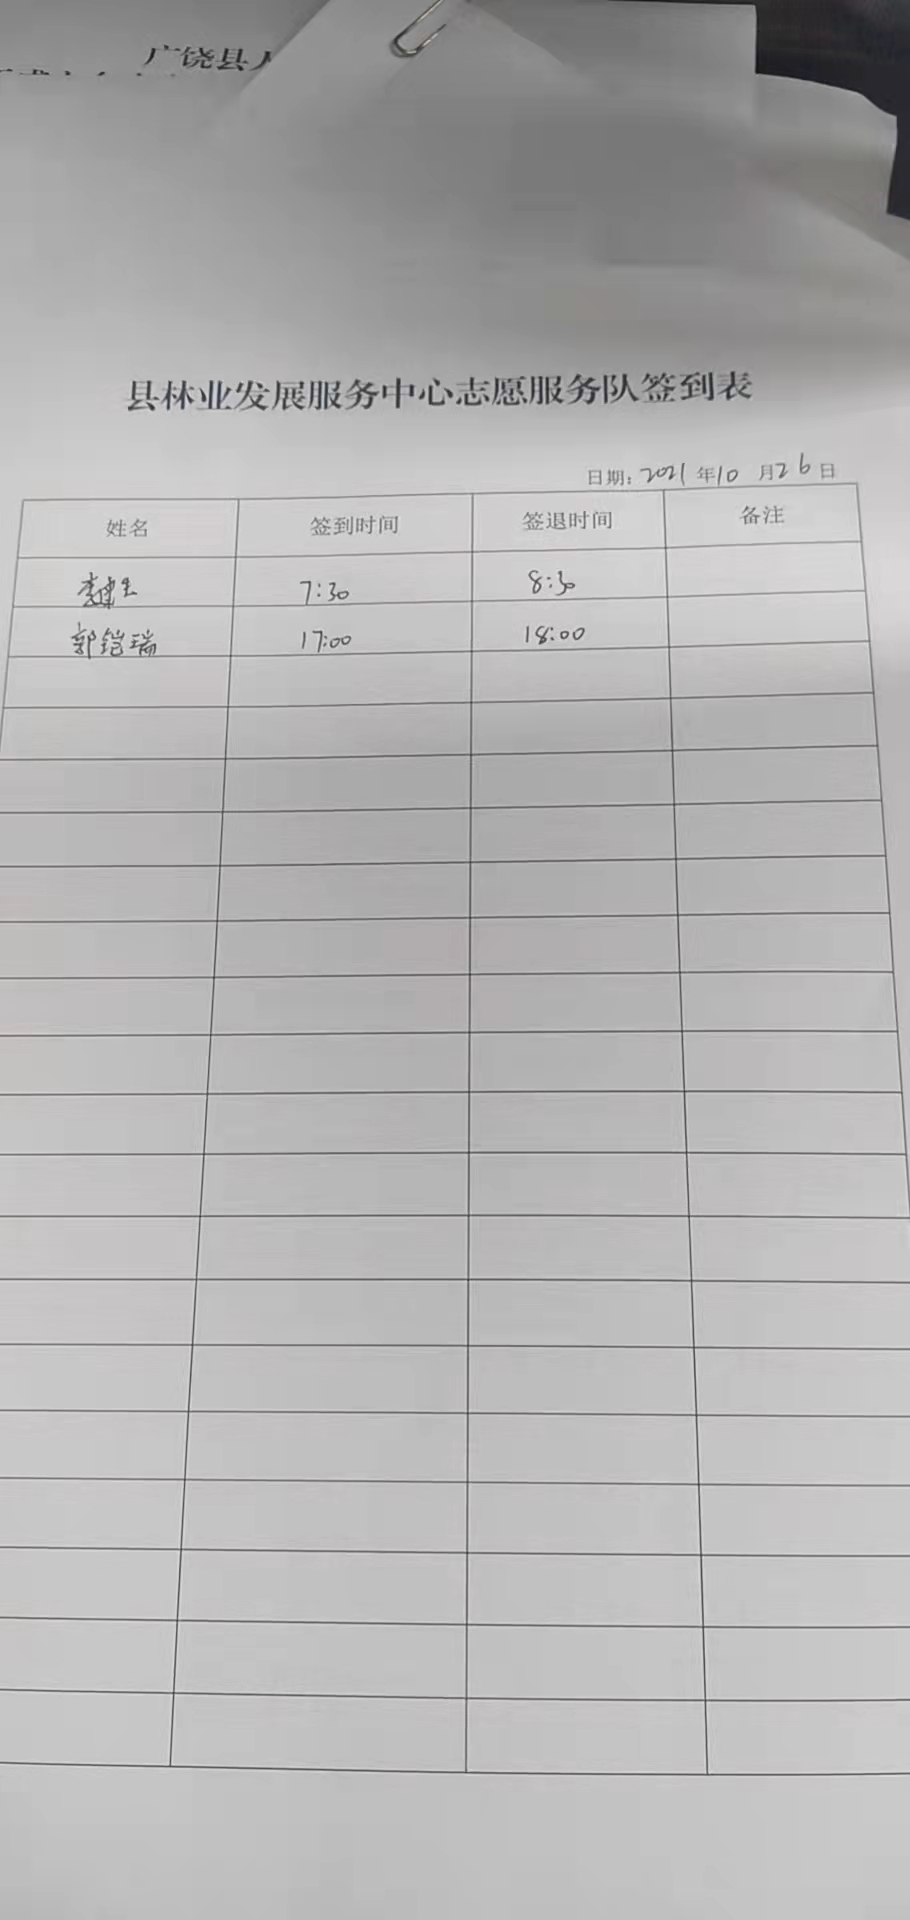 广饶县人
县林业发展服务中心志愿服务队签到表
日期: 2021 年10 月26日
姓名 签到时间 签退时间 备注
李建 7:30 8:30
郭铠瑞 17:00 18:00